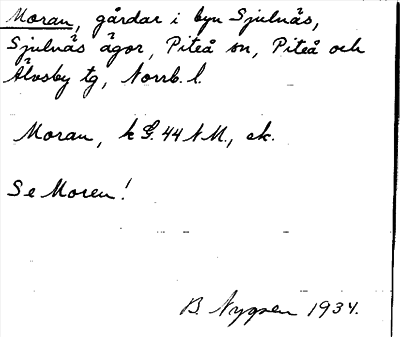 Moran, gårdar i byn Sjulnäs,
Sjulnäs ägor, Piteå sn, Piteå och
Älvsby tg, Norrb. l.
Moran, k G. 44 NM., ek.
Se Moren!
B. Nygren 1934.